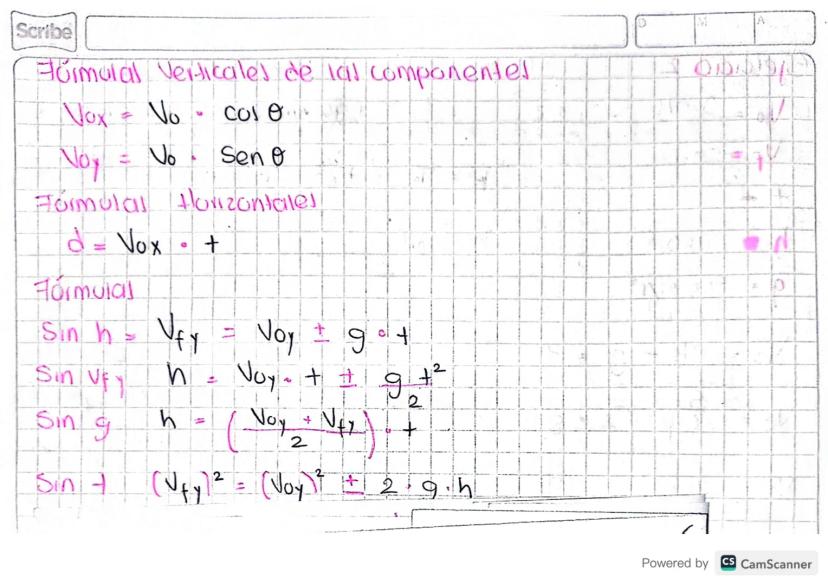 Scribe
D M A
Fórmulas Verticales de las componentes
Vox = Vo · cos θ
Voy = Vo · Sen θ
Fórmulas Horizontales
d = Vox · t
Fórmulas
Sin h = Vfy = Voy ± g · t
Sin Vfy h = Voy · t ± g t² / 2
Sin g h = (Voy + Vfy / 2) · t
Sin t (Vfy)² = (Voy)² ± 2 · g · h
Powered by CS CamScanner